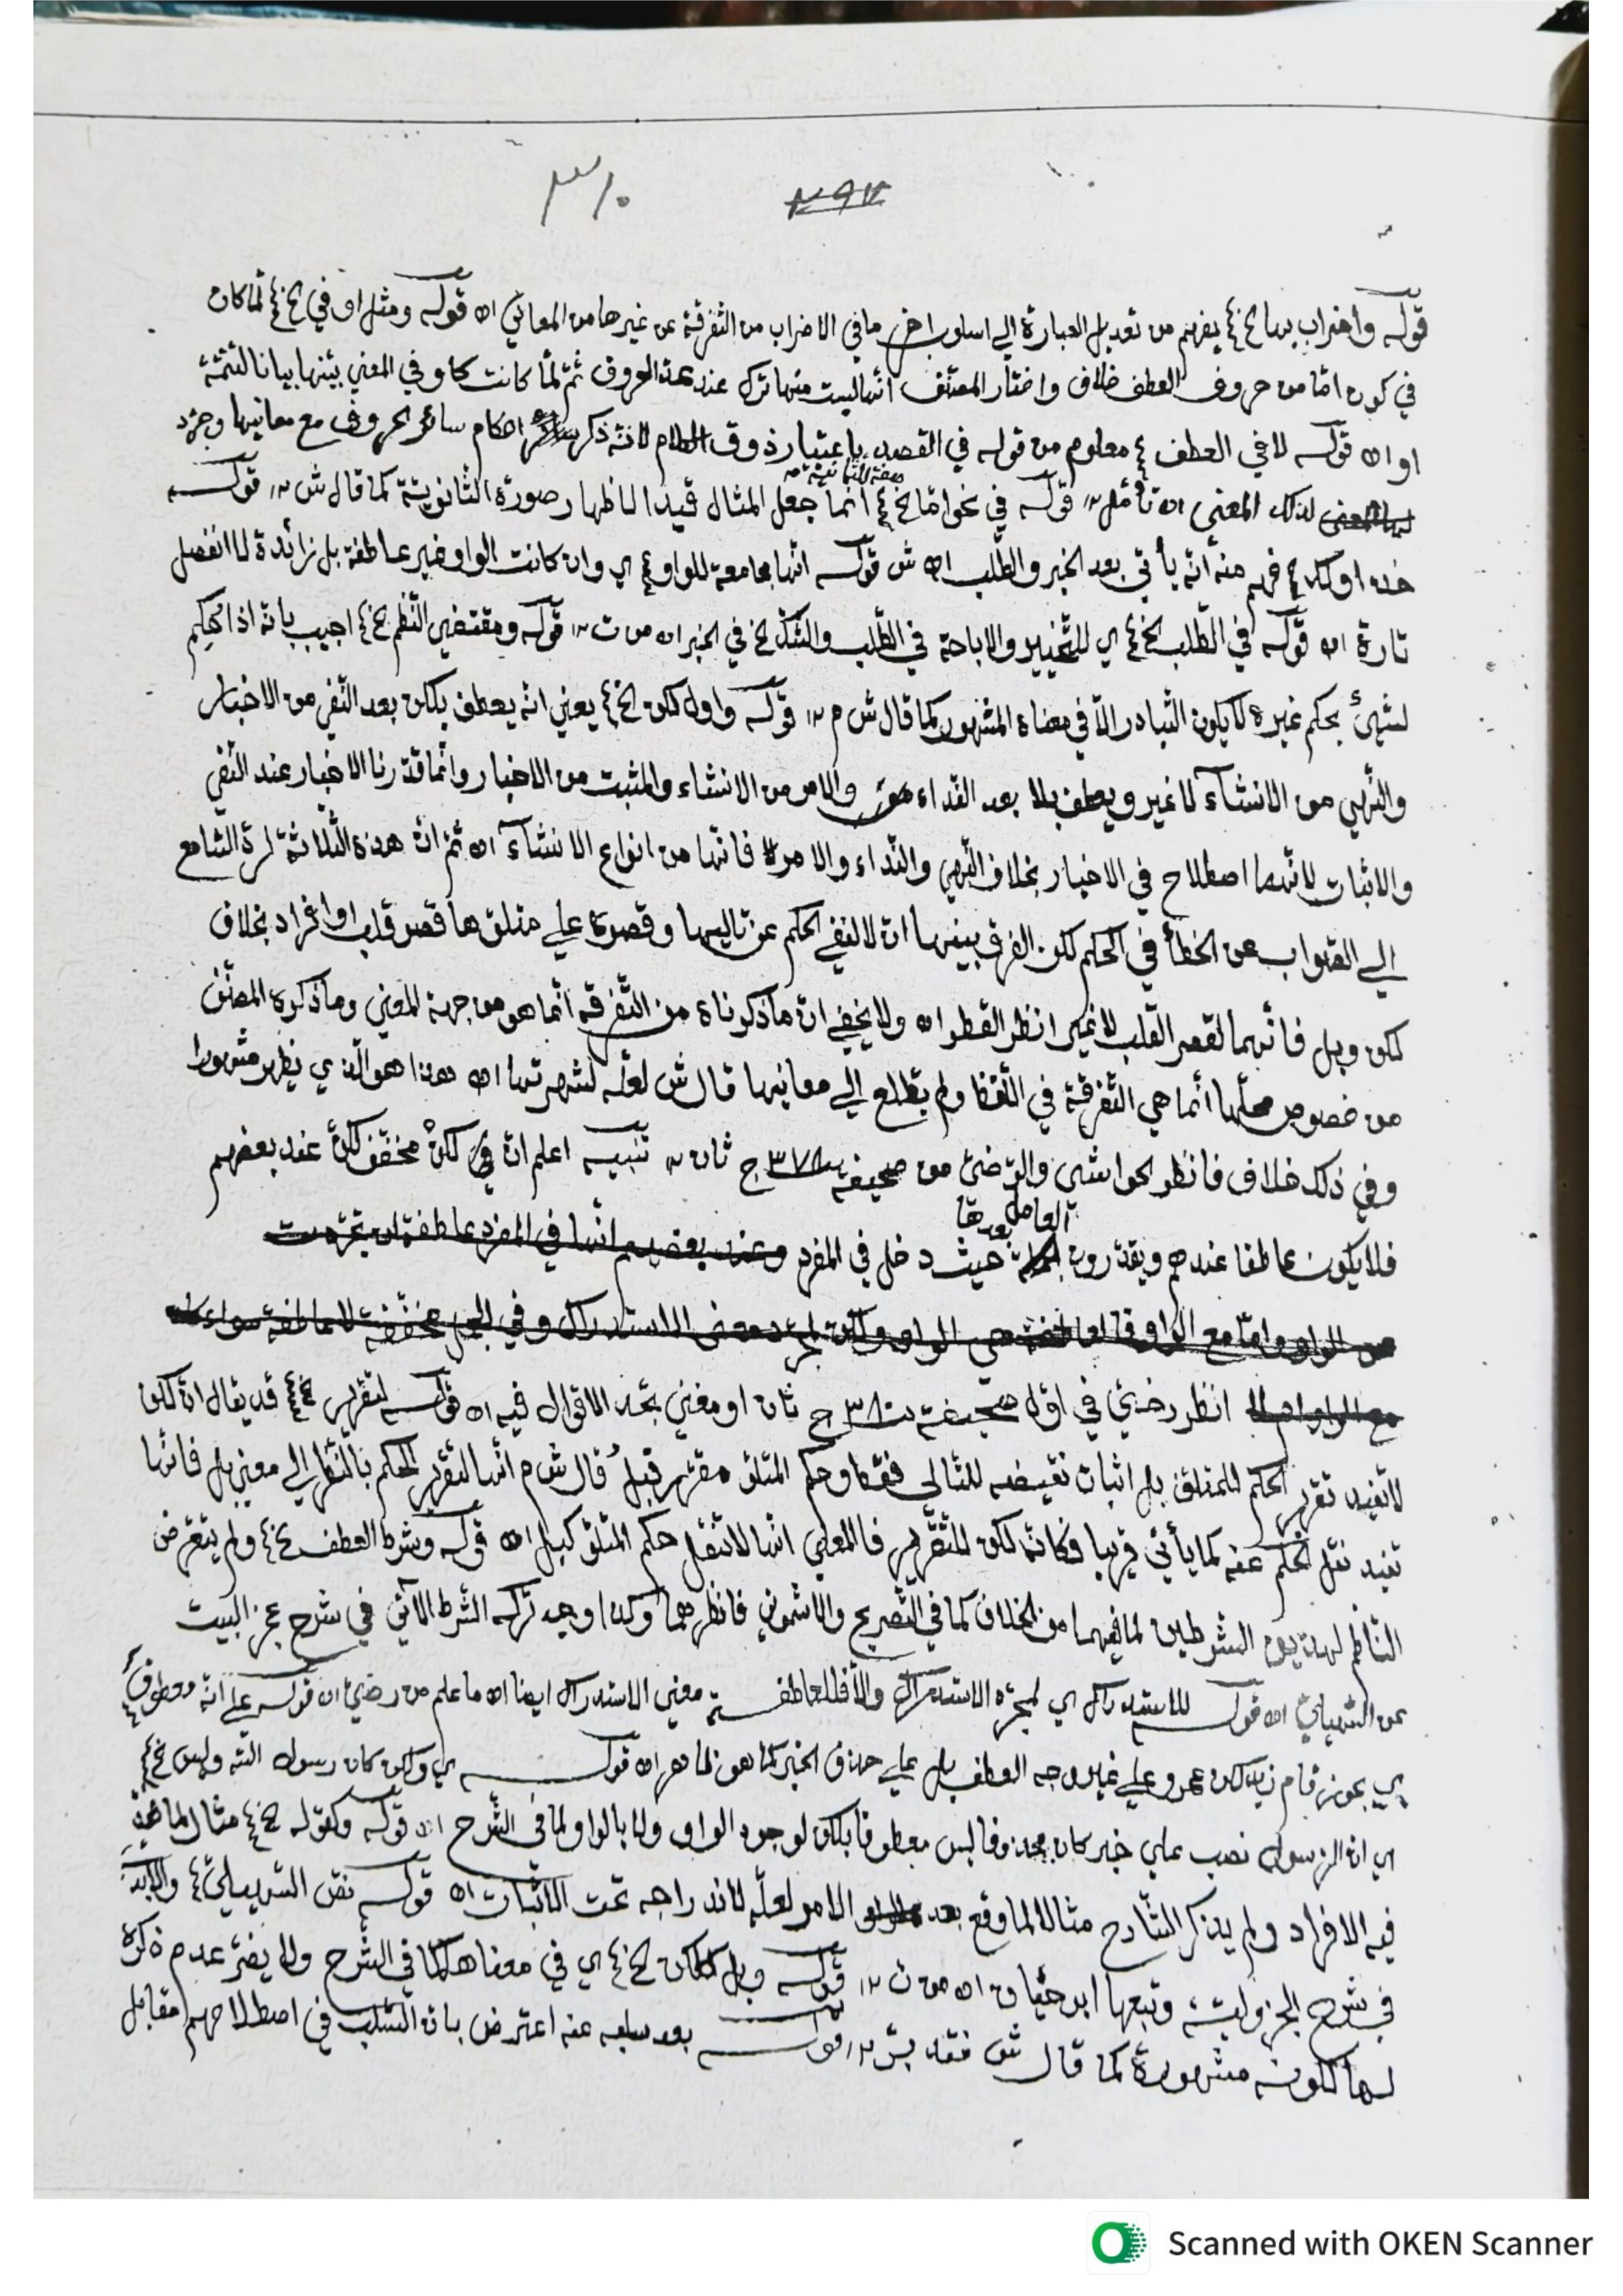 ٣١٠ ٢٩٧
قوله واضراب بها الخ ٤ يفهم من تعديل العبارة إلى اسلوب اخر ما في الاضراب من التفرقة عن غيرها من المعاني اه قوله ومثل او في الخ ٤ لما كان
في كون امّا من حروف العطف خلاف واختار المصنف انها ليست منها ترك عند عد الحروف ثم لمّا كانت كاو في المعني بيّنها بيانا لتتمة
او اه قوله لا في العطف ٤ معلوم من قوله في القصد باعتبار ذوق الكلام لانه ذكر احكام سائر الحروف مع معانيها وجرّد
لذلك المعني اه تأمل ١٢ قوله في نحو امّا الخ ٤ انما جعل المثال قيدا لاظهار صورة الثانوية كما قال ش ١٢ قوله
صفة للثانية
فهم منه انه يأتي بعد الخبر والطلب اه ش قوله انها مجامعة للواو ٤ اي وان كانت الواو غير عاطفة بل زائدة لا انفصل
تارة اه قوله في الطلب الخ ٤ اي للتخيير والاباحة في الطلب والشك الخ في الخبر اه من ت ١٢ قوله ومقتضي النظم الخ ٤ اجيب بانه اذا حكم
لشيئ بحكم غيره لا يكون التبادر الّا في معناه المشهور كما قال ش م ١٢ قوله واول لكن الخ ٤ يعني انه يعطف بلكن بعد النفي من الاخبار
والنهي من الانشاء لا غير ويعطف بلا بعد النداء والامر من الانشاء والمثبت من الاخبار وانما قدّرنا الاخبار عند النفي
والاثبات لانهما اصطلاح في الاخبار بخلاف النهي والنداء والامر فانها من انواع الانشاء اه ثم انّ هذه الثلاثة لردّ السّامع
إلى الصّواب عن الخطأ في الحكم لكن الفرق بينها انّ لا لنفي الحكم عن تاليها وقصره على متلوّها قصر قلب او افراد بخلاف
لكن وبل فانّهما لقصر القلب لا غير انظر القطر اه ولا يخفي انّ ما ذكرناه من التفرقة انّما هو من جهة المعني وما ذكره المصنّف
من خصوص محلّها انّما هي التفرقة في اللّفظ ولم يطّلع إلى معانيها قال ش لعلّه لشهرتها اه هذا هو الّذي يظهر مشهورا
وفي ذلك خلاف فانظر الحواشي والرّضيّ من صحيفة ٣٧٨ ج ثان ١٢ تنبيه اعلم انّ لكنْ مخفّف لكنّ عند بعضهم
فلا يكون عاطفا عندهم ويقدّرون العامل بعدها حيث دخل في المفرد وعند بعضهم انّها في المفرد عاطفة ان تجرّدت
عن الواو وامّا مع الواو فالعاطفة هي الواو ولكن لمجرّد معنى الاستدراك وفي الجمل مخفّفة لا عاطفة سواء كانت
انظر رضيّ في اوّل صحيفة ٣٨٠ ج ثان او مغني تجد الاقوال فيه اه قوله لتقرير الخ ٤ قد يقال انّ لكن
لا تفيد تقرير الحكم للمتلوّ بل اثبات نقيضه للتالي فقط وحكم المتلوّ مقرّر قبلُ قال ش م انّها لتقرير الحكم بالنّظر إلى معني بل فانّها
تفيد نقل الحكم عنه كما يأتي قريبا فكانّما لكن للتّقرير فالمعني انّها لا تنقل حكم المتلوّ كبل اه قوله وشرط العطف الخ ٤ ولم يتعرّض
النّاظم لهذين الشرطين لما فيهما من الخلاف كما في التّصريح والاشموني فانظرهما وكذا وجه تركه الشّرط الآتي في شرح عجز البيت
عن السّهيلي اه قوله للاستدراك اي لمجرّد الاستدراك والّا فللعاطفة معني الاستدراك ايضا اه ما علم من رضيّ اه قوله على انّه معطوف ٤
اي يجوز قام زيد لكن عمرو على غير وجه العطف بل على حذف الخبر كما هو ظاهر اه قوله اي ولكن كان رسول اللّه وليس الخ ٤
اي انّ الرّسول نصب على خبر كان محذوفا ليس معطوفا بلكن لوجود الواو ولا بالواو لما في الشّرح اه قوله وكقوله الخ ٤ مثال لما
فيه الافراد ولم يذكر الشّارح مثالا لما وقع بعد الامر لعلّه لاندراجه تحت الاثبات اه قوله نصّ السّهيليّ ٤ والابديّ
في شرح الجزوليّة وتبعها ابو حيّان اه من ت ١٢ قوله وبل كلكن الخ ٤ اي في معناها كما في الشّرح ولا يضرّ عدم ذكره
لها لكونه مشهورة كما قال ش فتدبّر ١٢ قوله بعد سلبه عنه اعترض بانّ السّلب في اصطلاحهم مقابل
Scanned with OKEN Scanner